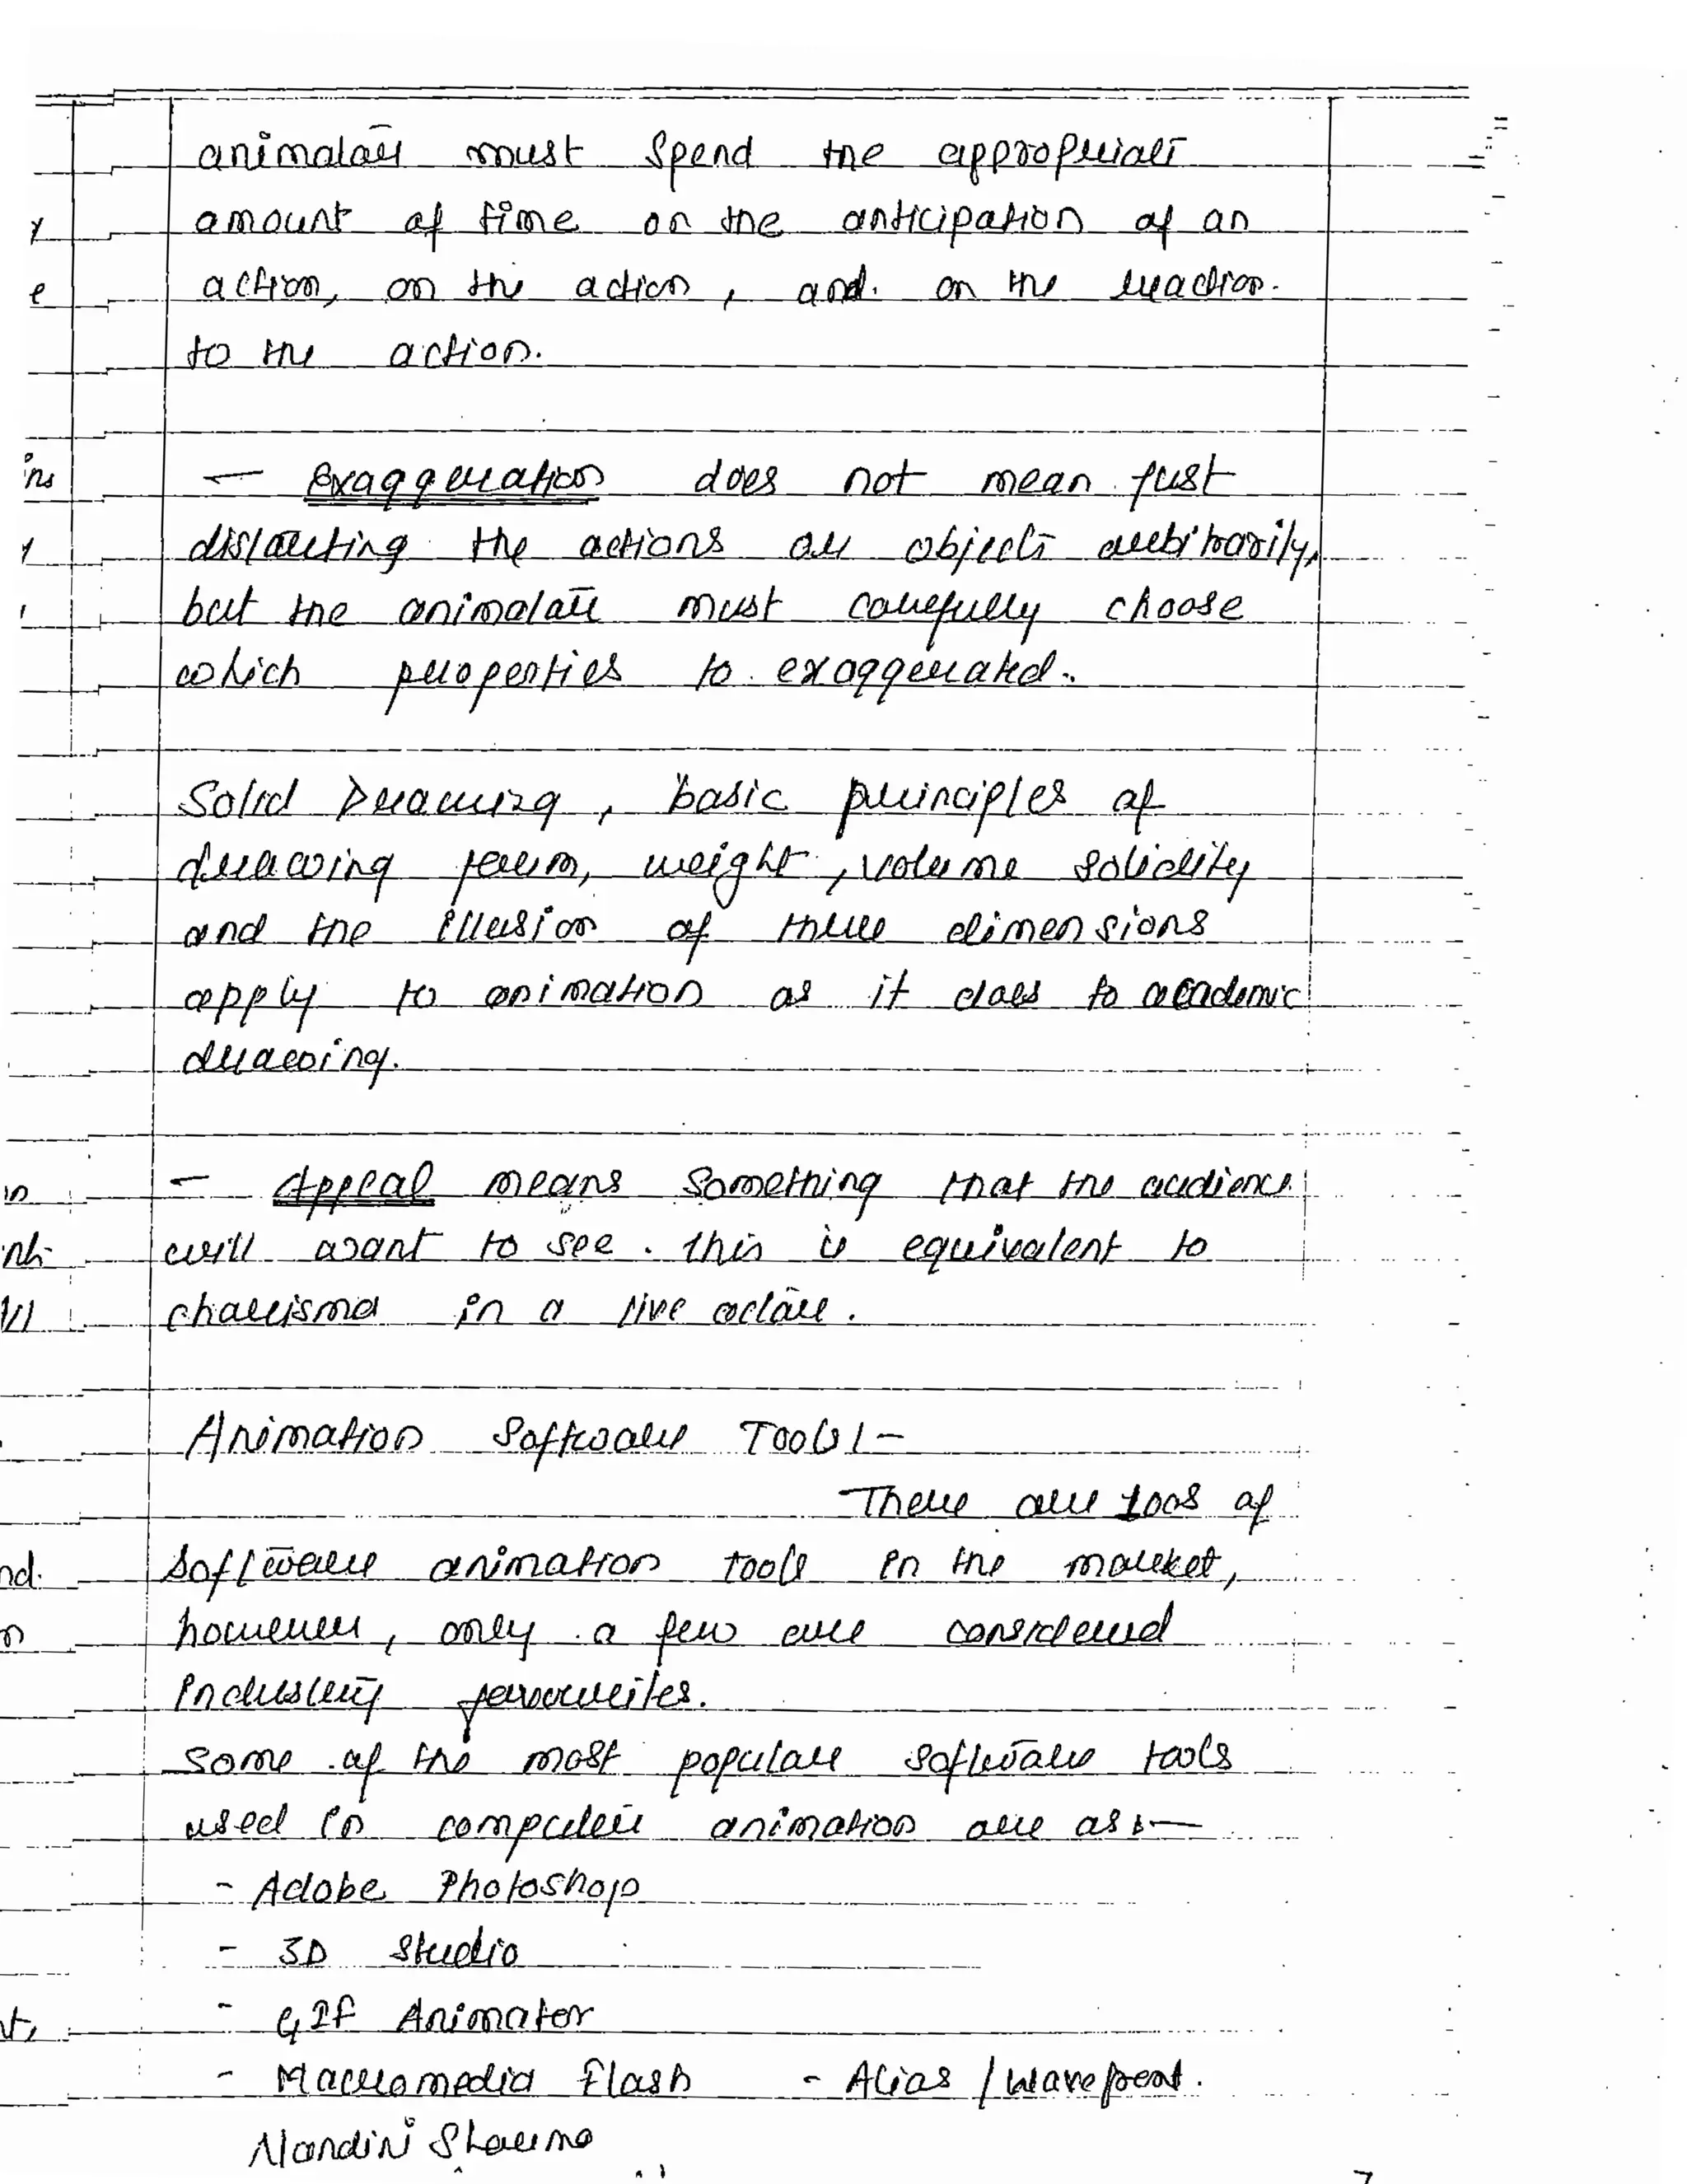 animator must spend the appropriate
amount of time on the anticipation of an
action, on the action, and. on the reaction.
to the action.
— Exaggeration does not mean just
distorting the actions or objects arbitrarily,
but the animator must carefully choose
which properties to exaggerated.
Solid Drawing, basic principles of
drawing form, weight, volume solidity
and the illusion of three dimensions
apply to animation as it does to academic
drawing.
- Appeal means something that the audience
will want to see. this is equivalent to
charisma in a live actor.
Animation Software Tools:-
There are 100s of
software animation tools in the market,
however, only a few are considered
industry favourites.
Some of the most popular software tools
used in computer animation are as:-
- Adobe Photoshop
- 3D Studio
- GIF Animator
- Macromedia Flash - Alias / Wavefront.
Nandini Sharma